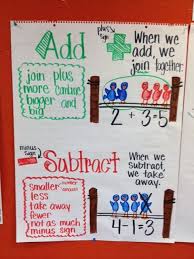 Add
plus
sign
When we
add, we
join together.
join plus
more combine
bigger and
big
2 + 3 = 5
minus
sign
Subtract
When we
subtract,
we take
away.
smaller
less
take away
fewer
not as much
minus sign
4-1=3